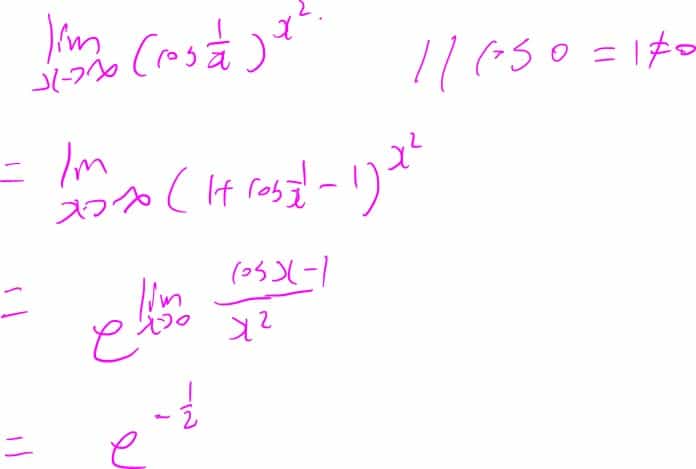 lim x→∞ (cos 1/x)^x². // cos 0 = 1 ≠ 0
= lim x→∞ (1 + cos 1/x - 1)^x²
= e^lim x→0 (cos x - 1)/x²
= e^-1/2